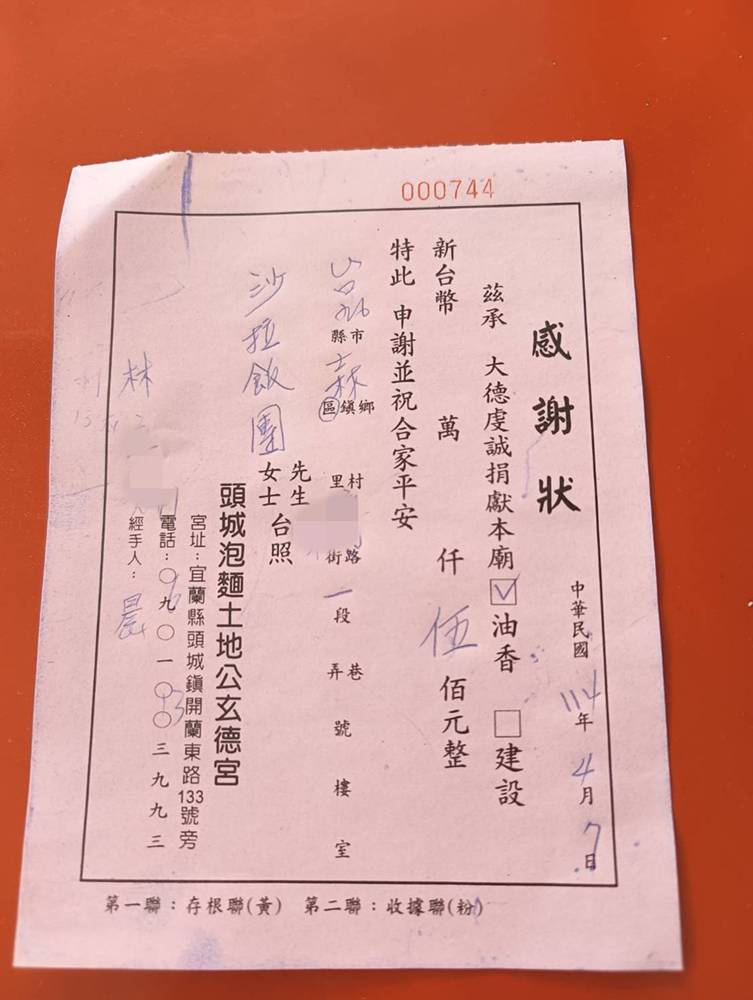 000744
感謝狀
中華民國114年4月7日
茲承 大德虔誠捐獻本廟☑油香 □建設
新台幣 萬 仟 伍 佰元整
特此 申謝並祝合家平安
縣市 鄉鎮區 村里 路街 一段 巷弄 號 樓 室
沙拉飯團 先生女士 台照
頭城泡麵土地公玄德宮
宮址:宜蘭縣頭城鎮開蘭東路133號旁
電話:○九○一○○三九九三
經手人:
林
第一聯:存根聯(黃) 第二聯:收據聯(粉)